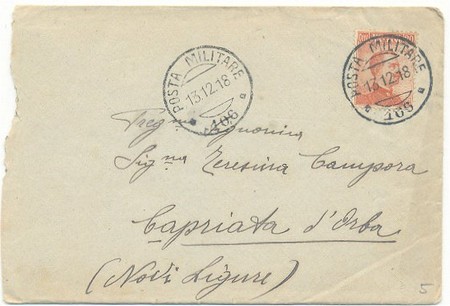 POSTA MILITARE
13.12.18
106
POSTA MILITARE
13.12.18
106
Preg.ma Signorina
Sig.na Teresina Campora
Capriata d'Orba
(Novi Ligure)
5